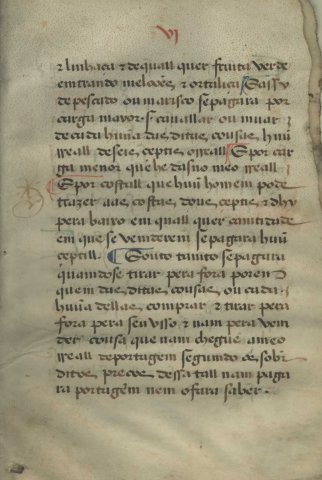 VI
⁊ linhaça ⁊ de qual quer fruita verde
em trando melooēs ⁊ ortaliça Eassy
de pescado ou marisco se pagara por
carga mayor .s. cauallar ou muar
de cada huũa das ditas cousas huũ
rreall de seis ceptis o rreall E por car
ga menor que he dasno meo rreall
E por costall que huũ homem pode
trazer aas costas dous ceptis ⁊ dhy
pera baixo em quall quer cantidade
em que se venderem se pagara huũ
ceptill. Eouto tanto se pagara
quando se tirar pera fora poren
quem das ditas cousas ou cada
huũa dellas comprar ⁊ tirar pera
fora pera seu vsso ⁊ nam pera ven
der cousa que nam chegue a meo
rreall de portagem segundo os sobr
ditos preços dessa tall nam paga
ra portagem nem o fara saber.